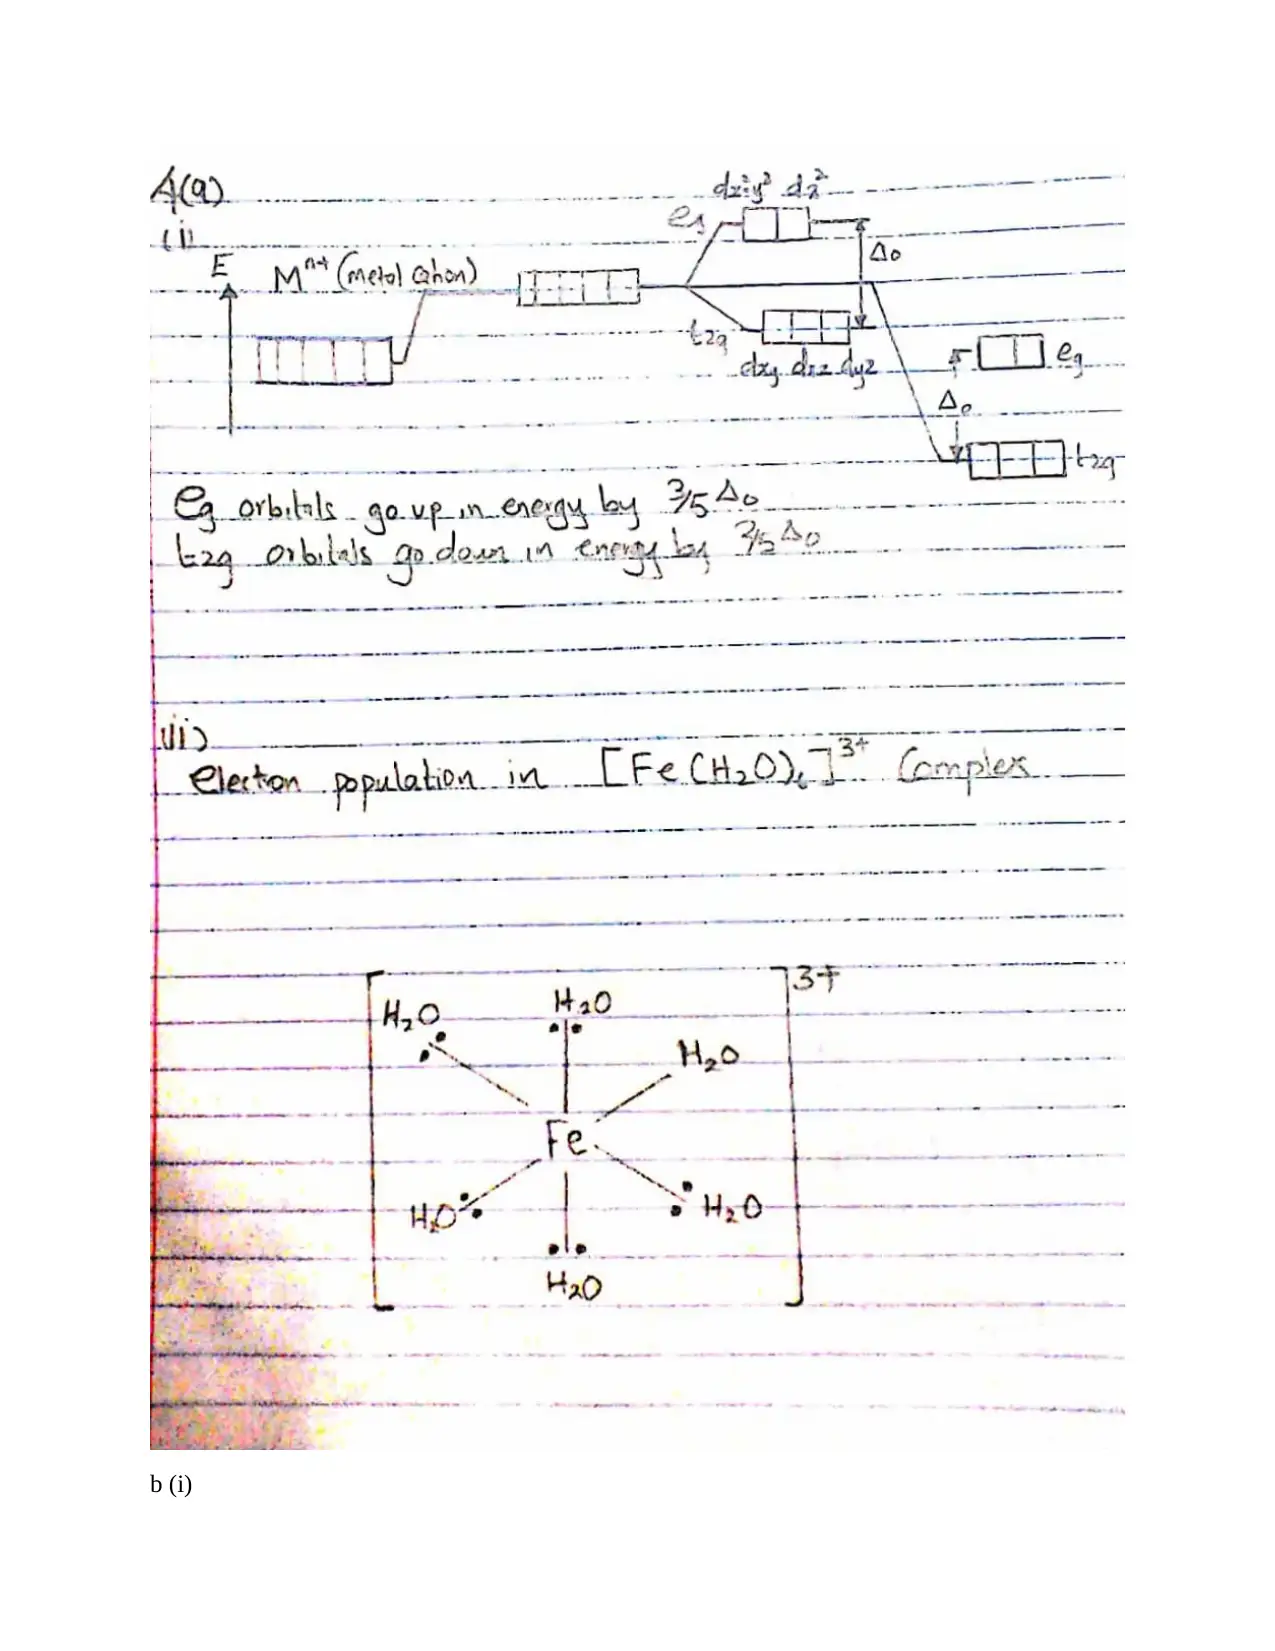 4(a)
(i)
dx²-y² dz²
eg
Δo
E
Mn+ (metal cation)
t2g
dxy dxz dyz
eg
Δo
t2g
eg orbitals go up in energy by 3/5 Δo
t2g orbitals go down in energy by 2/5 Δo
(ii)
election population in [Fe(H2O)6]3+ Complex
3+
H2O
H2O
H2O
Fe
H2O
H2O
H2O
b (i)